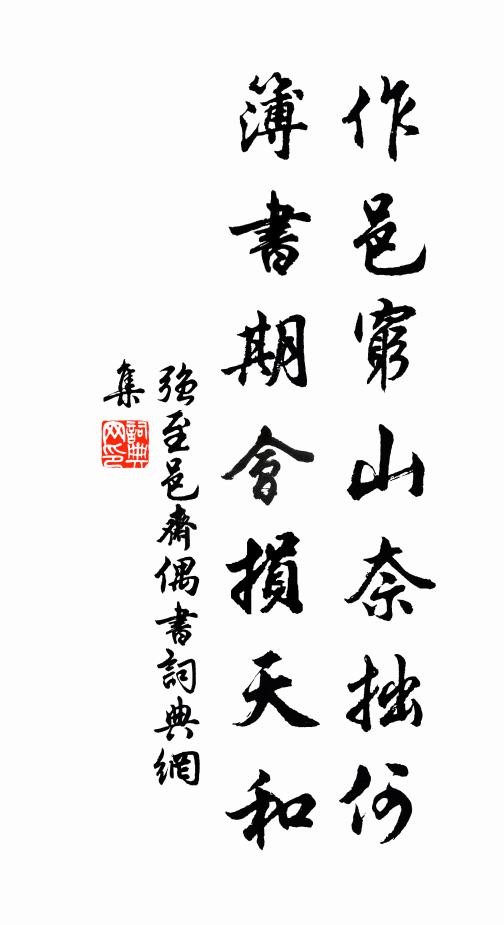 作邑窮山奈拙何
簿書期會損天和
強至邑齋偶書詞典網
集
詞典網印